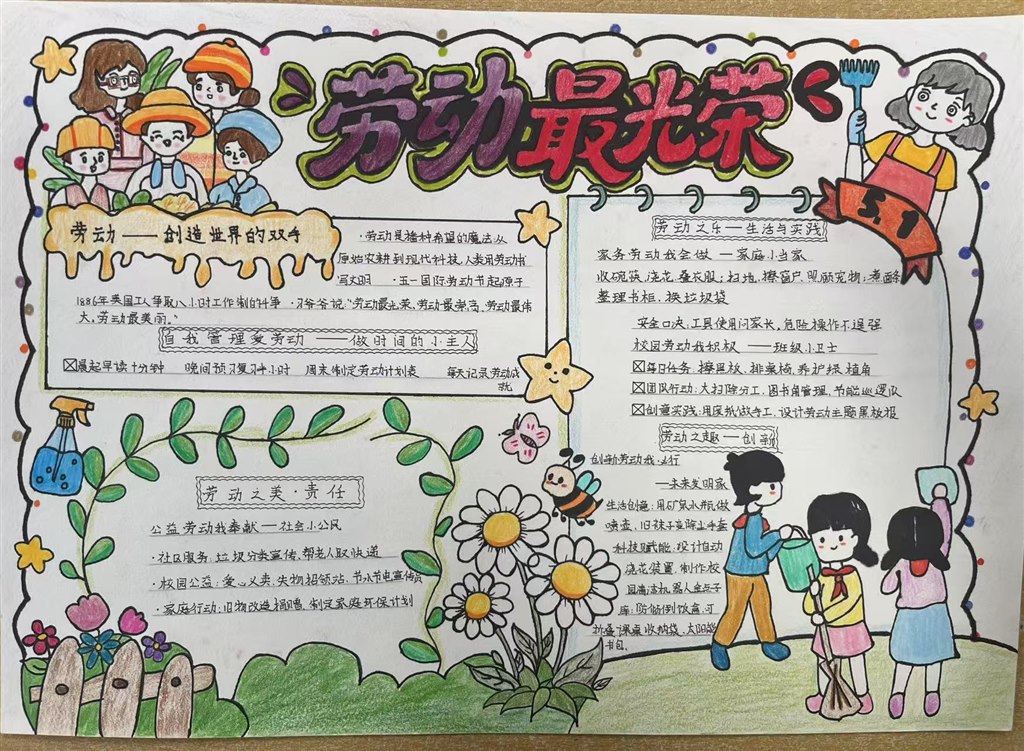 劳动最光荣
5.1
劳动——创造世界的双手
·劳动是播种希望的魔法,从
原始农耕到现代科技,人类用劳动书
写文明 ·五一国际劳动节起源于
1886年美国工人争取八小时工作制的斗争 ·习爷爷说:“劳动最光荣、劳动最崇高、劳动最伟
大,劳动最美丽。”
自我管理爱劳动——做时间的小主人
☒晨起早读十分钟 晚间预习复习半小时 周末制定劳动计划表 每天记录劳动成
就
劳动之美·责任
公益劳动我奉献—社会小公民
·社区服务:垃圾分类宣传、帮老人取快递
·校园公益:爱心义卖、失物招领站、节水节电宣传员
·家庭行动:旧物改造捐赠、制定家庭环保计划
劳动之乐—生活与实践
家务劳动我会做—家庭小当家
收碗筷,浇花,叠衣服;扫地,擦窗户,照顾宠物;煮面条
整理书柜、换垃圾袋
安全口诀:工具使用问家长,危险操作不逞强
校园劳动我积极——班级小卫士
☒每日任务:擦黑板、排桌椅、养护绿植角
☒团队行动:大扫除分工、图书角管理、节能巡逻队
☒创意实践:用废纸做手工、设计劳动主题黑板报
劳动之趣—创新
创新劳动我先行
—未来发明家
生活创意:用矿泉水瓶做
喷壶、旧袜子变除尘手套
科技赋能:设计自动
浇花装置、制作校
园清洁机器人金点子
库:防偷倒饭盒、可
折叠课桌收纳袋、太阳能
书包。